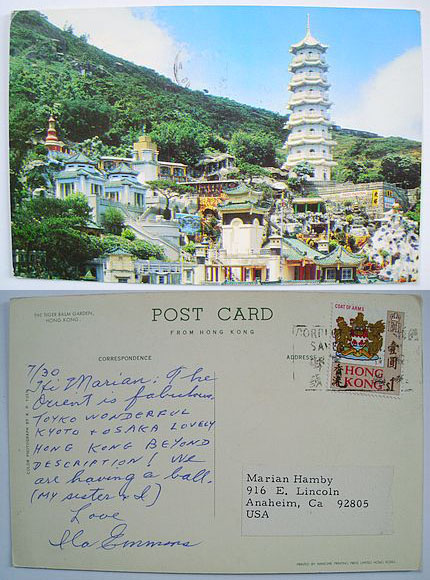 THE TIGER BALM GARDEN,
HONG KONG.
POST CARD
FROM HONG KONG
CORRESPONDENCE
ADDRESS
COAT OF ARMS
HONG
KONG
香港
壹圓
$1
7/30
Hi Marian: The
Orient is fabulous
TOYKO WONDERFUL
KYOTO + OSAKA LOVELY
HONG KONG BEYOND
DESCRIPTION! We
are having a ball.
(MY sister & I)
Love
Ila Emmons
Marian Hamby
916 E. Lincoln
Anaheim, Ca 92805
USA
COLOR PHOTOGRAPH BY